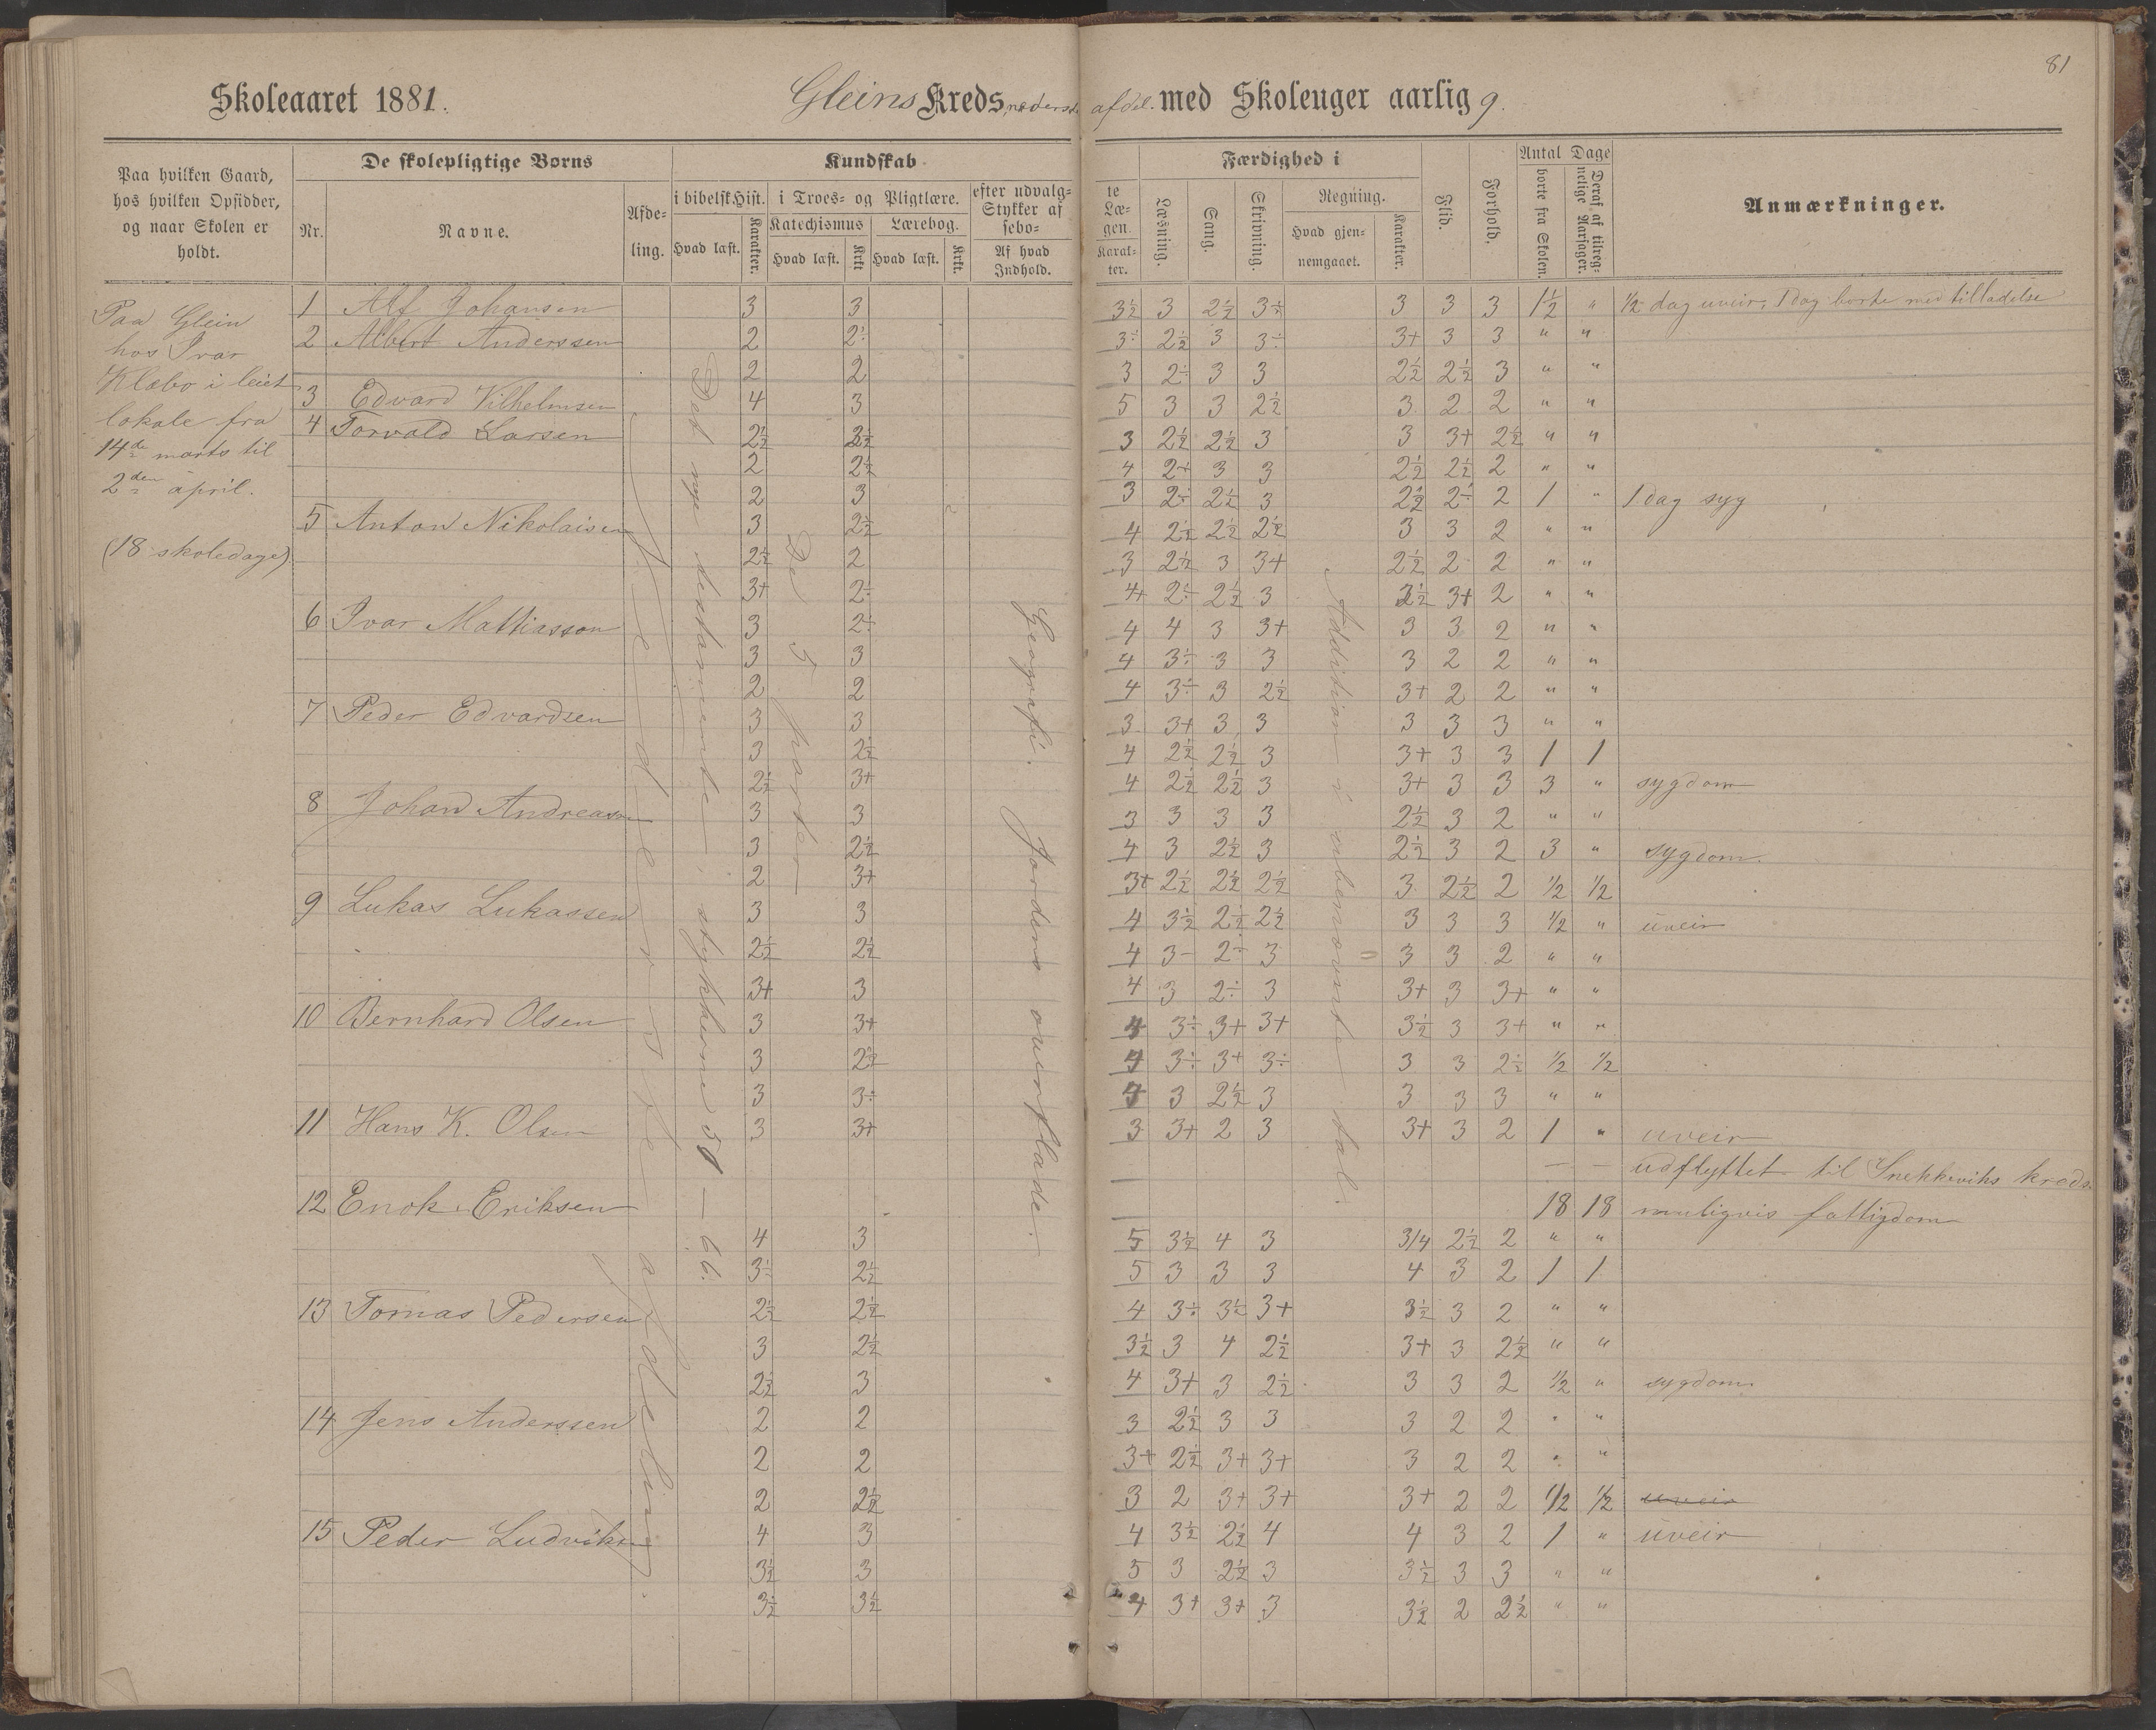 81
Skoleaaret 1881. Gleins Kreds, nederste afdel. med Skoleuger aarlig 9.
Paa hvilken Gaard, hos hvilken Opsidder, og naar Skolen er holdt.
De skolepligtige Børns
Nr. Navne. Afdeling.
Kundskab
i bibelsk Hist. i Troes- og Pligtlære. efter udvalgte Stykker af Læsebogen.
Hvad læst. Karakter. Katechismus Hvad læst. Krkt. Lærebog. Hvad læst. Krkt. Af hvad Indhold. Karakter.
Færdighed i
Læsning. Sang. Skrivning. Regning. Hvad gjennemgaaet. Karakter.
Flid. Forhold.
Antal Dage
borte fra Skolen. Deraf af tilregnelige Aarsager.
Anmærkninger.
Paa Glein
hos Ivar
Klæbo i leiet
lokale fra
14de marts til
2den april.
(18 skoledage)
Nederste afdeling.
Det nye testamente: stykkerne 51 — 66.
De 5 parter
Geografi. Jordens overflade.
Addition i ubenævnte tal.
1 Alf Johansen 3 3 3½ 3 2½ 3÷ 3 3 3 1½ " ½ dag uveir, 1 dag borte med tilladelse
2 Albert Anderssen 2 2÷ 3÷ 2½ 3 3÷ 3+ 3 3 " "
2 2 3 2÷ 3 3 2½ 2½ 3 " "
3 Edvard Vilhelmsen 4 3 5 3 3 2½ 3 2 2 " "
4 Torvald Larsen 2½ 2½ 3 2½ 2½ 3 3 3+ 2½ " "
2 2½ 4 2+ 3 3 2½ 2½ 2 " "
2 3 3 2÷ 2½ 3 2½ 2÷ 2 1 " 1 dag syg
5 Anton Nikolaisen 3 2½ 4 2½ 2½ 2½ 3 3 2 " "
2½ 2 3 2½ 3 3+ 2½ 2 2 " "
3+ 2÷ 4+ 2÷ 2½ 3 3½ 3+ 2 " "
6 Ivar Mathiasson 3 2÷ 4 4 3 3+ 3 3 2 " "
3 3 4 3÷ 3 3 3 2 2 " "
2 2 4 3÷ 3 2½ 3+ 2 2 " "
7 Peder Edvardsen 3 3 3 3+ 3 3 3 3 3 " "
3 2½ 4 2½ 2½ 3 3+ 3 3 1 1
2½ 3+ 4 2½ 2½ 3 3+ 3 3 3 " sygdom
8 Johan Andreasen 3 3 3 3 3 3 2½ 3 2 " "
3 2½ 4 3 2½ 3 2½ 3 2 3 " sygdom.
2 3+ 3+ 2½ 2½ 2½ 3 2½ 2 ½ ½
9 Lukas Lukassen 3 3 4 3½ 2½ 2½ 3 3 3 ½ " uveir
2½ 2½ 4 3- 2÷ 3 3 3 2 " "
3+ 3 4 3 2÷ 3 3+ 3 3+ " "
10 Bernhard Olsen 3 3+ 4 3÷ 3+ 3+ 3½ 3 3+ " "
3 2½ 4 3÷ 3+ 3÷ 3 3 2½ ½ ½
3 3÷ 4 3 2½ 3 3 3 3 " "
11 Hans K. Olsen 3 3+ 3 3+ 2 3 3+ 3 2 1 " uveir
— — udflyttet til Snekkeviks kreds.
12 Enok Eriksen 18 18 muligvis fattigdom
4 3 5 3½ 4 3 3/4 2½ 2 " "
3÷ 2½ 5 3 3 3 4 3 2 1 1
13 Tomas Pedersen 2½ 2½ 4 3÷ 3½ 3+ 3½ 3 2 " "
3 2½ 3½ 3 4 2½ 3+ 3 2½ " "
2½ 3 4 3+ 3 2½ 3 3 2 ½ " sygdom.
14 Jens Anderssen 2 2 3 2½ 3 3 3 2 2 " "
2 2 3+ 2½ 3+ 3+ 3 2 2 " "
2 2½ 3 2 3+ 3+ 3+ 2 2 ½ ½ uveir
15 Peder Ludviksen 4 3 4 3½ 2½ 4 4 3 2 1 " uveir
3½ 3 5 3 2½ 3 3½ 3 3 " "
3½ 3½ 4 3+ 3+ 3 3½ 2 2½ " "